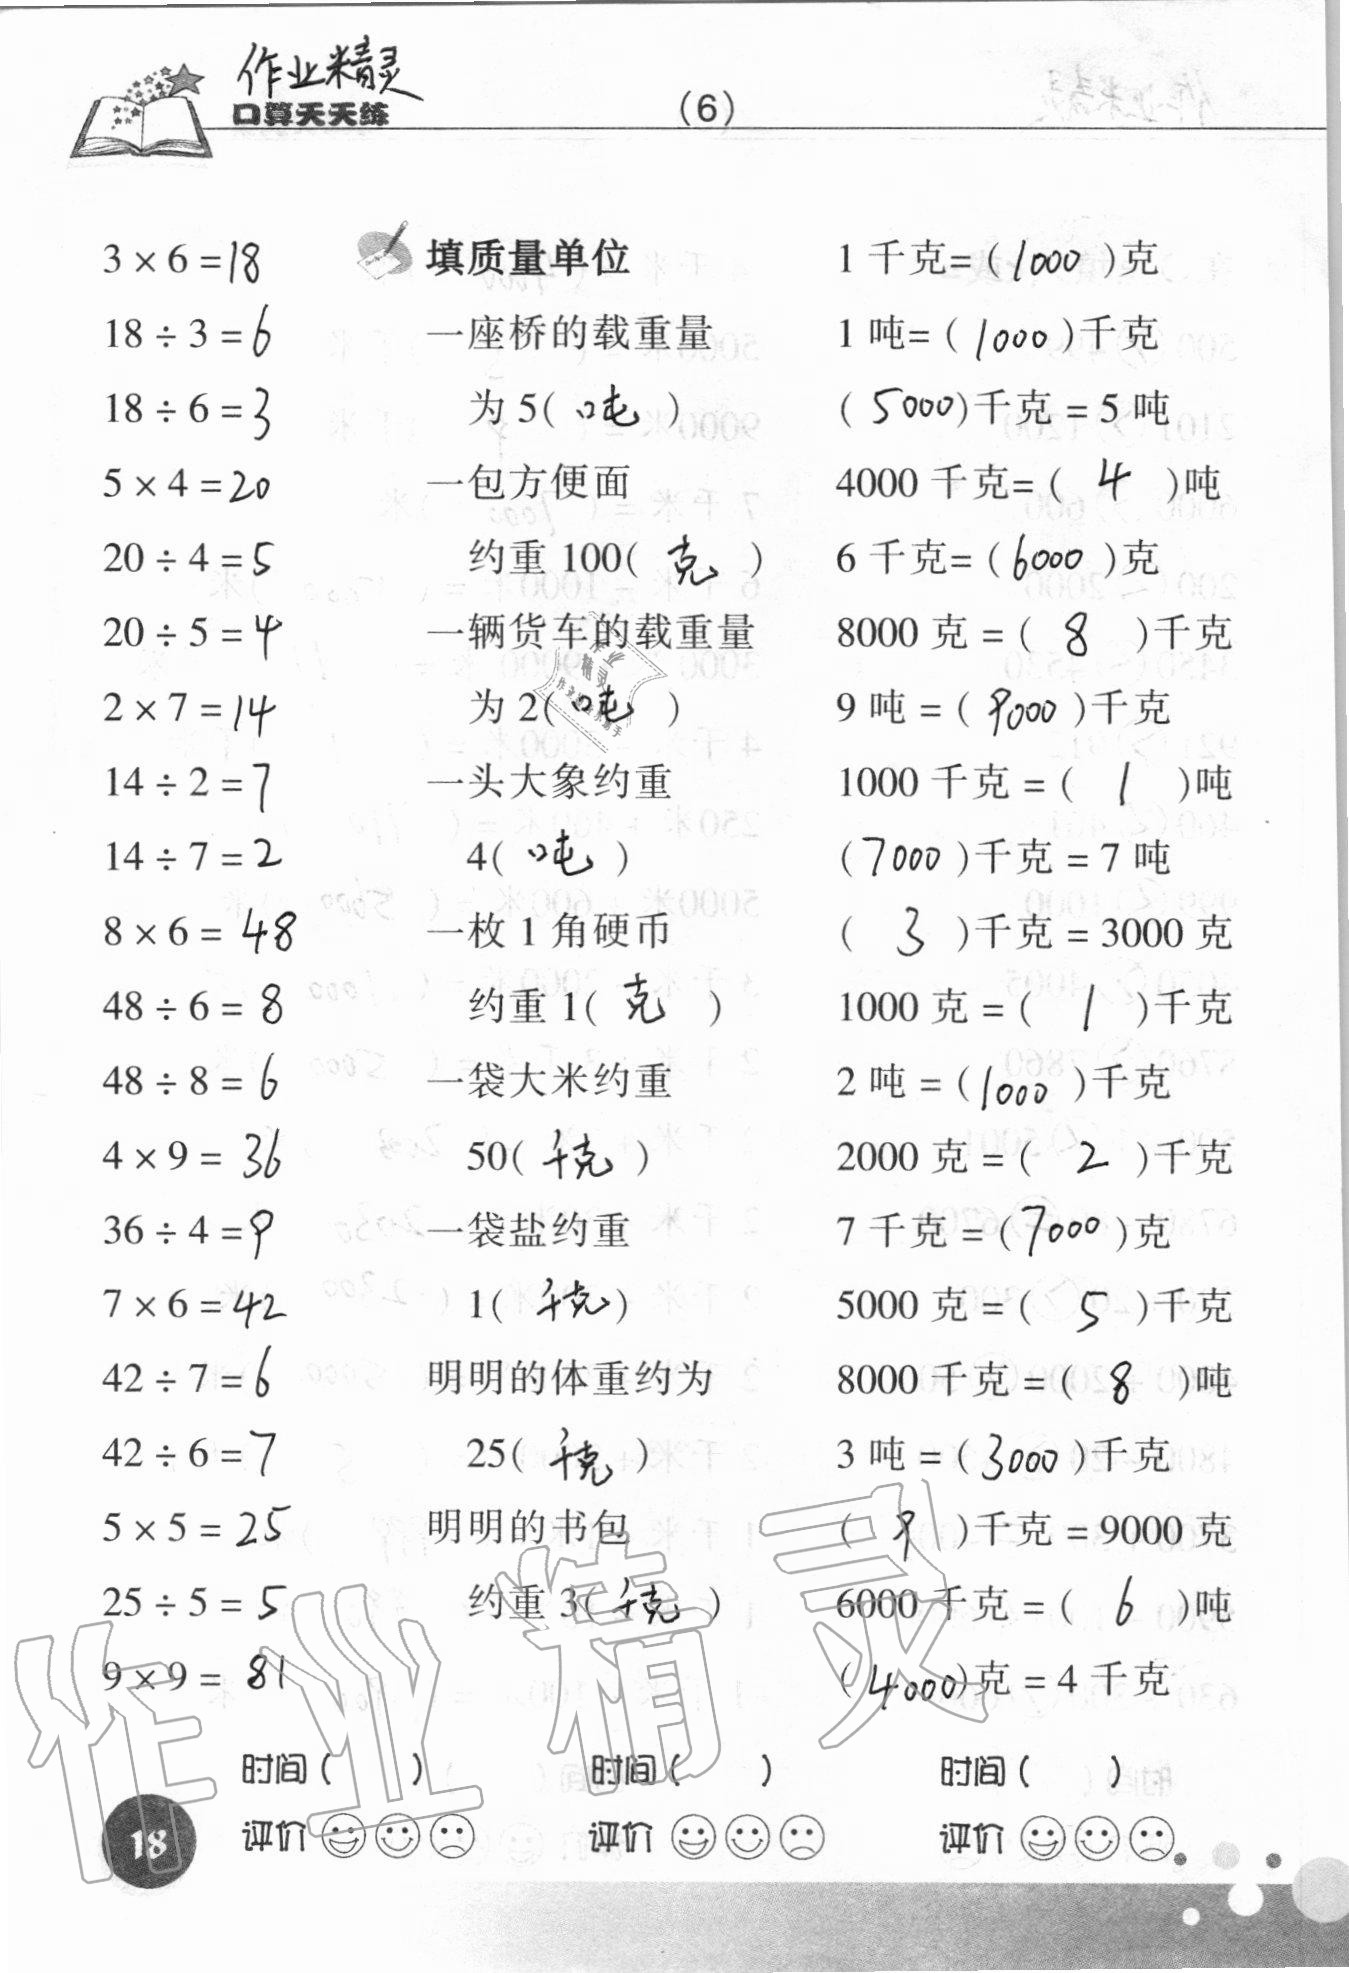 作业精灵
口算天天练
(6)
3 × 6 = 18
18 ÷ 3 = 6
18 ÷ 6 = 3
5 × 4 = 20
20 ÷ 4 = 5
20 ÷ 5 = 4
2 × 7 = 14
14 ÷ 2 = 7
14 ÷ 7 = 2
8 × 6 = 48
48 ÷ 6 = 8
48 ÷ 8 = 6
4 × 9 = 36
36 ÷ 4 = 9
7 × 6 = 42
42 ÷ 7 = 6
42 ÷ 6 = 7
5 × 5 = 25
25 ÷ 5 = 5
9 × 9 = 81
时间 ( )
评价
填质量单位
一座桥的载重量
为 5( 吨 )
一包方便面
约重 100( 克 )
一辆货车的载重量
为 2( 吨 )
一头大象约重
4( 吨 )
一枚 1 角硬币
约重 1( 克 )
一袋大米约重
50( 千克 )
一袋盐约重
1( 千克 )
明明的体重约为
25( 千克 )
明明的书包
约重 3( 千克 )
时间 ( )
评价
1 千克= ( 1000 )克
1 吨= ( 1000 )千克
( 5000)千克 = 5 吨
4000 千克= ( 4 )吨
6 千克= ( 6000 )克
8000 克 = ( 8 )千克
9 吨 = ( 9000 )千克
1000 千克 = ( 1 )吨
( 7000 )千克 = 7 吨
( 3 )千克 = 3000 克
1000 克 = ( 1 )千克
2 吨 = ( 1000 )千克
2000 克 = ( 2 )千克
7 千克 = ( 7000 )克
5000 克 = ( 5 )千克
8000 千克 = ( 8 )吨
3 吨 = ( 3000 )千克
( 9 )千克 = 9000 克
6000 千克 = ( 6 )吨
( 4000)克 = 4 千克
时间 ( )
评价
18
作业精灵